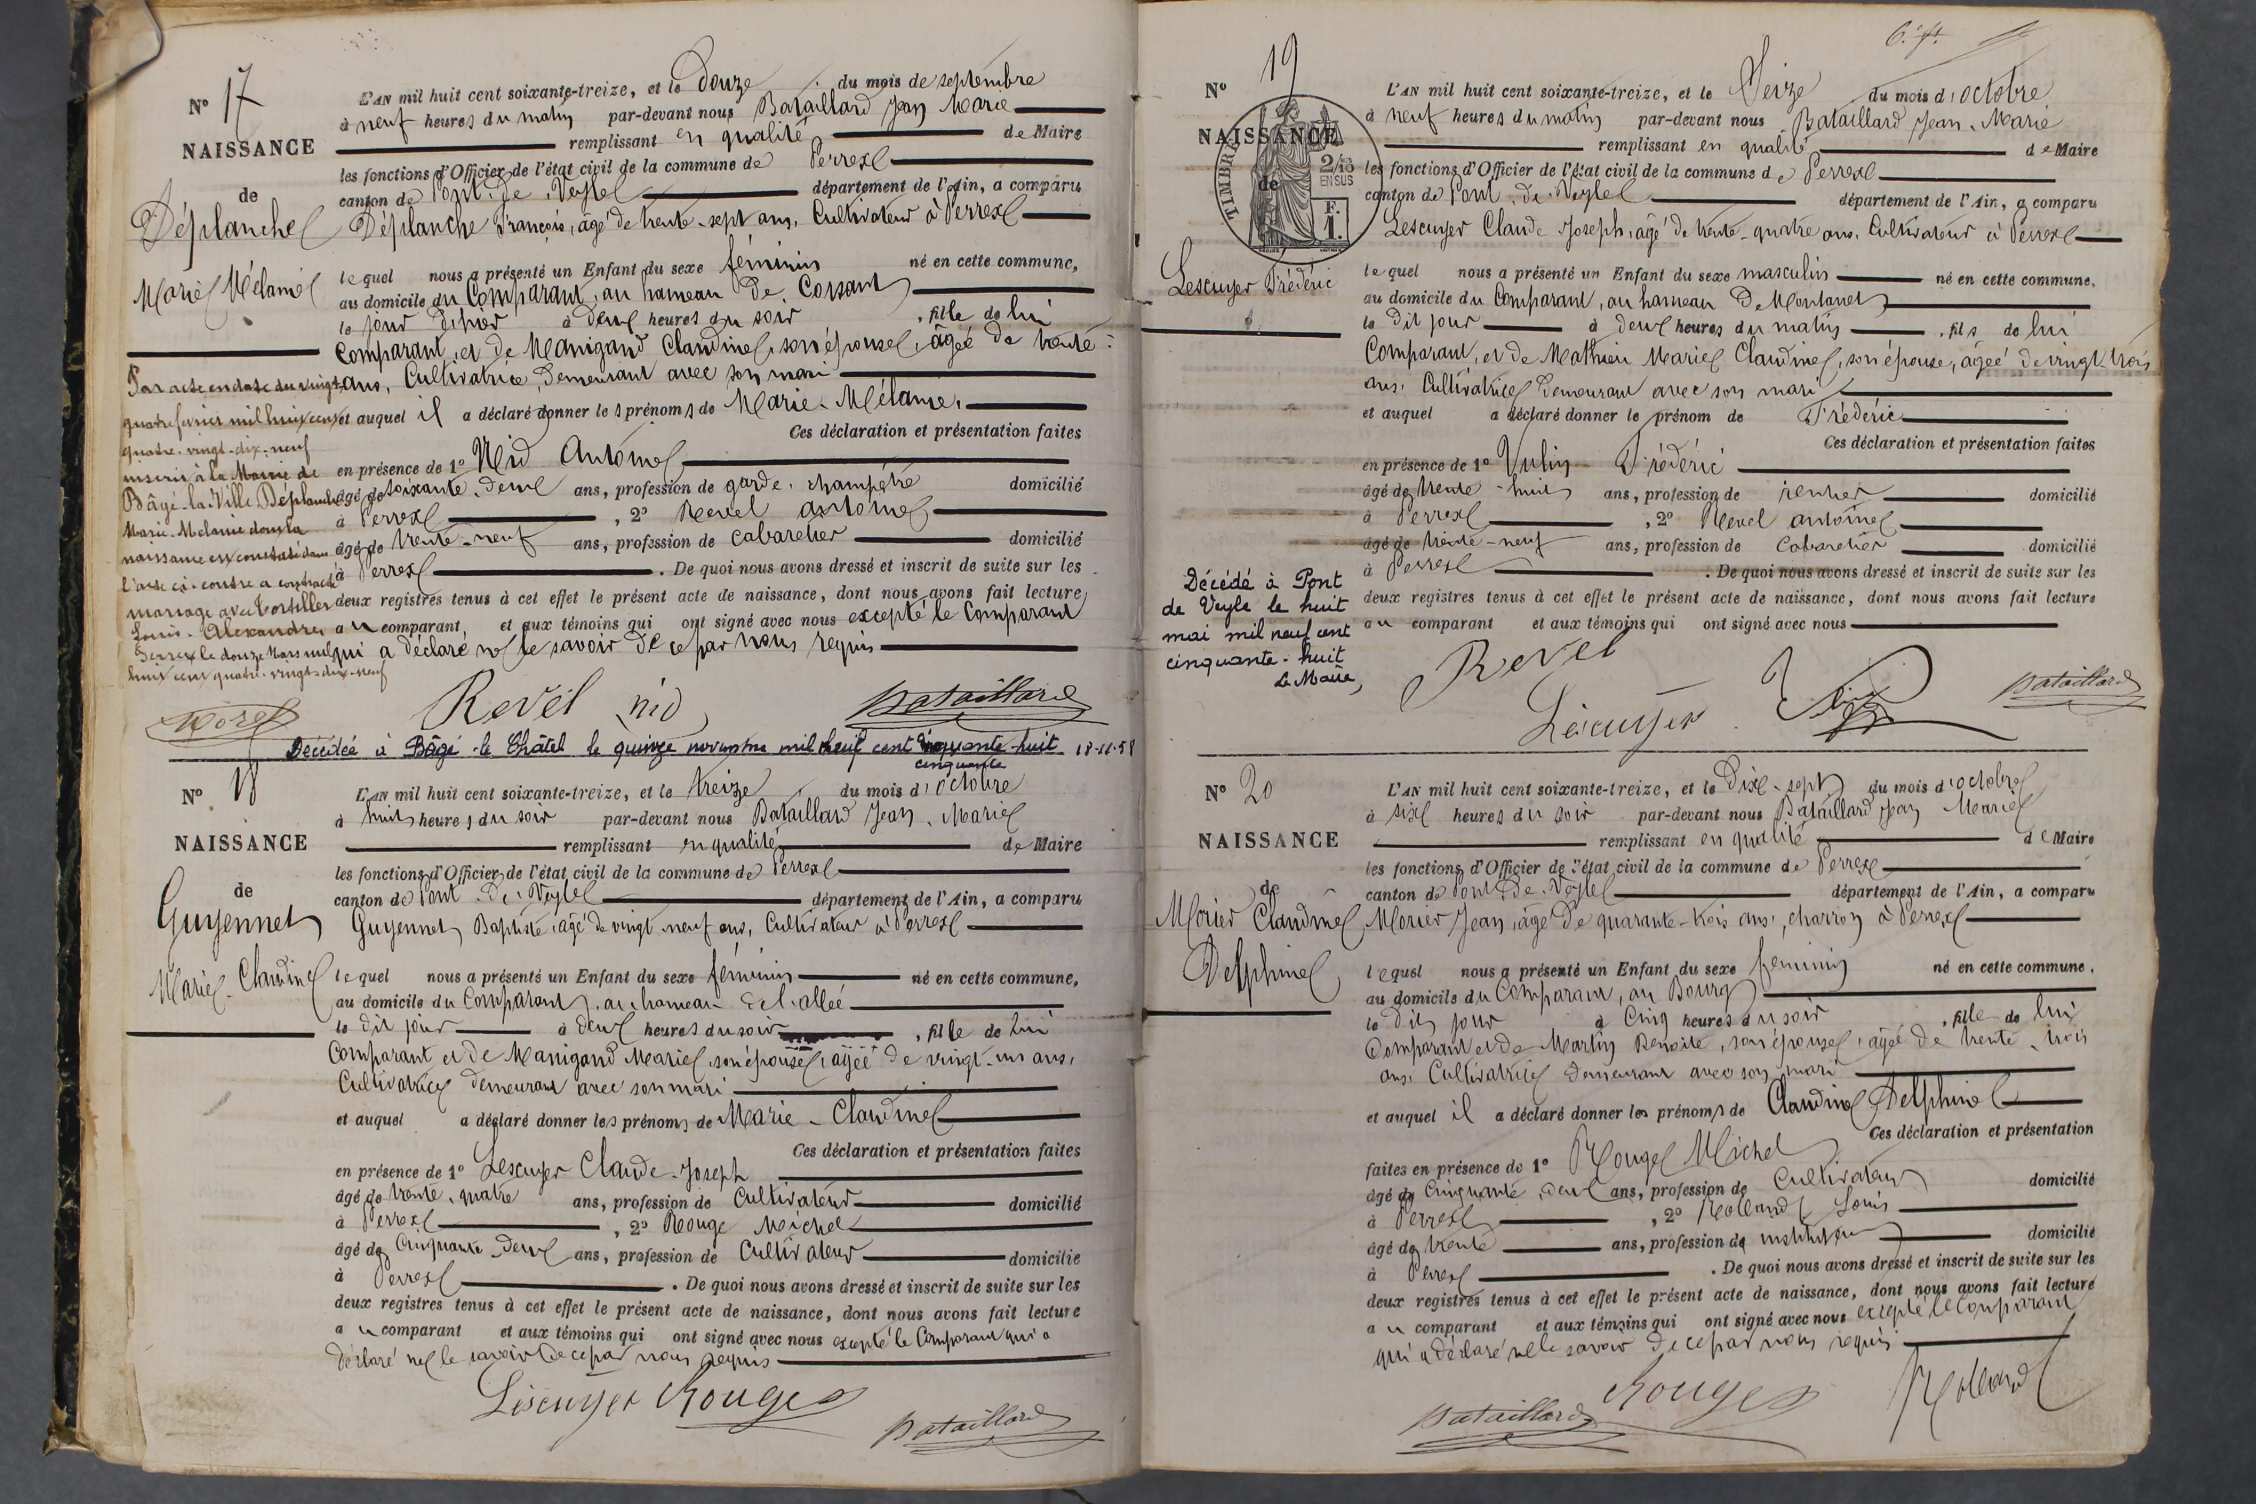 N° 17
NAISSANCE
de
Déplanche
Marie Mélanie
L'AN mil huit cent soixante-treize, et le Douze du mois de septembre
à neuf heures du matin par-devant nous Bataillard Jean Marie
remplissant en qualité de Maire
les fonctions d'Officier de l'état civil de la commune de Perrex
canton de Pont-de-Veyle département de l'Ain, a comparu
Déplanche François, âgé de trente-sept ans, Cultivateur à Perrex
lequel nous a présenté un Enfant du sexe féminin né en cette commune,
au domicile du Comparant, au hameau de Cossant
le jour d'hier à deux heures du soir, fille de lui
Comparant, et de Manigand Claudine, son épouse, âgée de trente
ans, Cultivatrice, demeurant avec son mari
et auquel il a déclaré donner les prénoms de Marie-Mélanie,
Ces déclaration et présentation faites
en présence de 1° Nid Antoine
âgé de soixante-deux ans, profession de garde-champêtre domicilié
à Perrex, 2° Revel Antoine
âgé de trente-neuf ans, profession de cabaretier domicilié
à Perrex. De quoi nous avons dressé et inscrit de suite sur les
deux registres tenus à cet effet le présent acte de naissance, dont nous avons fait lecture
au comparant et aux témoins qui ont signé avec nous excepté le Comparant
qui a déclaré ne le savoir de ce par nous requis
Par acte en date du vingt
quatre février mil huit cent
quatre-vingt-dix-neuf
inscrit à la Mairie de
Bâgé-la-Ville Déplanche
Marie-Mélanie dont la
naissance est constatée dans
l'acte ci-contre a contracté
mariage avec Tortiller
Louis-Alexandre
Perrex le douze Mars mil
huit cent quatre-vingt-dix-neuf
Morel
Revel nid Bataillard
Décédée à Bâgé-le-Châtel le quinze novembre mil neuf cent soixante-huit 18-11-58
cinquante
N° 18
NAISSANCE
de
Guyennet
Marie-Claudine
L'AN mil huit cent soixante-treize, et le treize du mois d'octobre
à huit heures du soir par-devant nous Bataillard Jean-Marie
remplissant en qualité de Maire
les fonctions d'Officier de l'état civil de la commune de Perrex
canton de Pont-de-Veyle département de l'Ain, a comparu
Guyennet Baptiste, âgé de vingt-neuf ans, Cultivateur à Perrex
lequel nous a présenté un Enfant du sexe féminin né en cette commune,
au domicile du Comparant, au hameau de l'allée
le dit jour à deux heures du soir, fille de lui
Comparant et de Manigand Marie, son épouse, âgée de vingt-un ans,
Cultivatrice demeurant avec son mari
et auquel a déclaré donner les prénoms de Marie-Claudine
Ces déclaration et présentation faites
en présence de 1° Lescuyer Claude-Joseph
âgé de trente-quatre ans, profession de Cultivateur domicilié
à Perrex, 2° Rouge Michel
âgé de Cinquante-deux ans, profession de Cultivateur domicilié
à Perrex. De quoi nous avons dressé et inscrit de suite sur les
deux registres tenus à cet effet le présent acte de naissance, dont nous avons fait lecture
au comparant et aux témoins qui ont signé avec nous excepté le Comparant qui a
déclaré ne le savoir de ce par nous requis
Lescuyer Rouge
Bataillard
N° 19
NAISSANCE
de
TIMBRE
2/10
EN SUS
F.
1.
Lescuyer Frédéric
L'AN mil huit cent soixante-treize, et le Seize du mois d'octobre
à neuf heures du matin par-devant nous Bataillard Jean-Marie
remplissant en qualité de Maire
les fonctions d'Officier de l'état civil de la commune de Perrex
canton de Pont-de-Veyle département de l'Ain, a comparu
Lescuyer Claude Joseph, âgé de trente-quatre ans, Cultivateur à Perrex
lequel nous a présenté un Enfant du sexe masculin né en cette commune,
au domicile du Comparant, au hameau de Montanet
le dit jour à deux heures du matin, fils de lui
Comparant, et de Mathieu Marie Claudine, son épouse, âgée de vingt-trois
ans, Cultivatrice demeurant avec son mari
et auquel a déclaré donner le prénom de Frédéric
Ces déclaration et présentation faites
en présence de 1° Vulin Frédéric
âgé de trente-huit ans, profession de rentier domicilié
à Perrex, 2° Revel Antoine
âgé de trente-neuf ans, profession de Cabaretier domicilié
à Perrex. De quoi nous avons dressé et inscrit de suite sur les
deux registres tenus à cet effet le présent acte de naissance, dont nous avons fait lecture
au comparant et aux témoins qui ont signé avec nous
Décédé à Pont
de Veyle le huit
mai mil neuf cent
cinquante-huit
Le Maire,
Revel
Lescuyer
Bataillard
N° 20
NAISSANCE
de
Morier Claudine
Delphine
L'AN mil huit cent soixante-treize, et le Dix-sept du mois d'octobre
à six heures du soir par-devant nous Bataillard Jean Marie
remplissant en qualité de Maire
les fonctions d'Officier de l'état civil de la commune de Perrex
canton de Pont-de-Veyle département de l'Ain, a comparu
Morier Jean, âgé de quarante-trois ans, charron à Perrex
lequel nous a présenté un Enfant du sexe féminin né en cette commune,
au domicile du Comparant, au Bourg
le dit jour à Cinq heures du soir, fille de lui
Comparant et de Martin Benoite, son épouse, âgée de trente-trois
ans, Cultivatrice demeurant avec son mari
et auquel il a déclaré donner les prénoms de Claudine Delphine
Ces déclaration et présentation
faites en présence de 1° Rouge Michel
âgé de Cinquante-deux ans, profession de Cultivateur domicilié
à Perrex, 2° Rolland Louis
âgé de trente ans, profession de instituteur domicilié
à Perrex. De quoi nous avons dressé et inscrit de suite sur les
deux registres tenus à cet effet le présent acte de naissance, dont nous avons fait lecture
au comparant et aux témoins qui ont signé avec nous excepté le Comparant
qui a déclaré ne le savoir de ce par nous requis
Bataillard Rouge Rolland